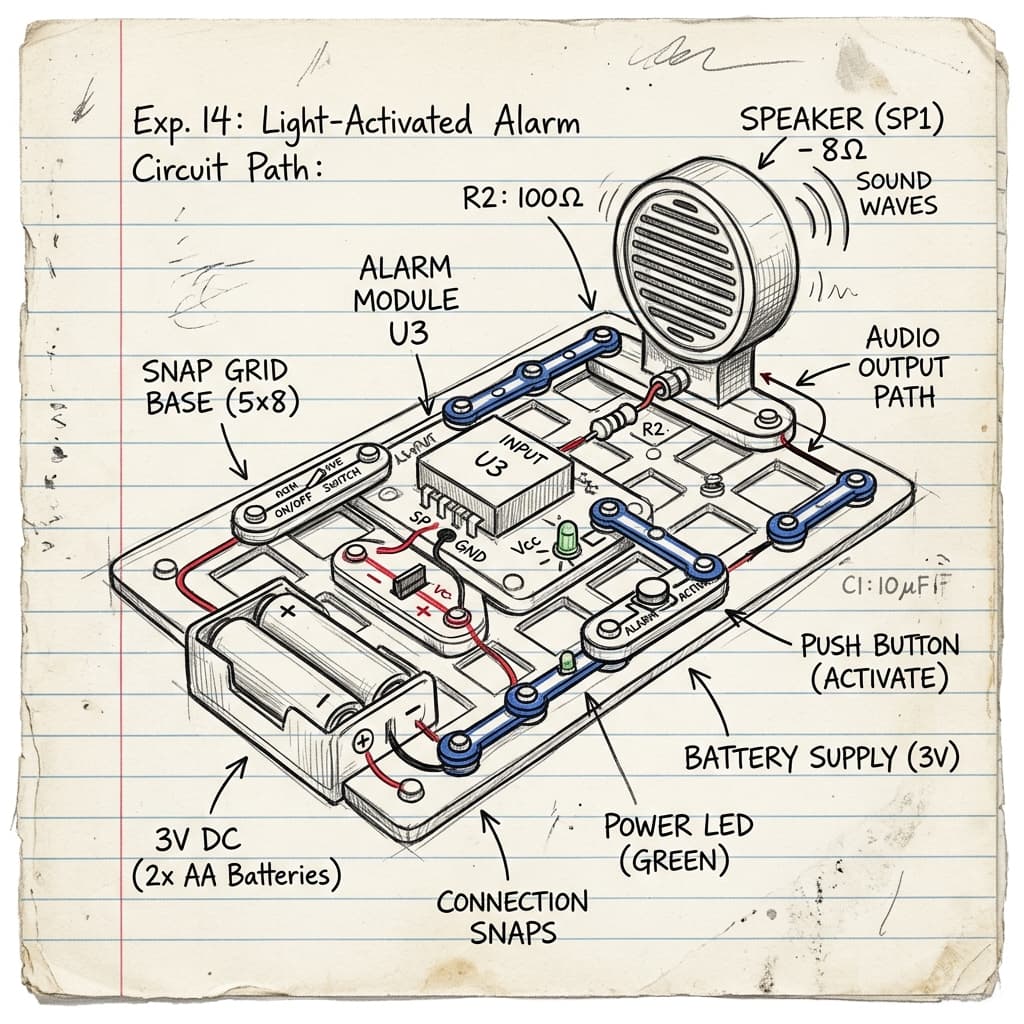 Exp. 14: Light-Activated Alarm
Circuit Path:
SPEAKER (SP1)
- 8Ω
SOUND
WAVES
R2: 100Ω
ALARM
MODULE
U3
AUDIO
OUTPUT
PATH
SNAP GRID
BASE (5x8)
R2.
INPUT
U3
SWITCH
ON/OFF
SP
GND
VCC
-
+
C1: 10μF
ALARM
PUSH BUTTON
(ACTIVATE)
+
-
-
+
BATTERY SUPPLY (3V)
POWER LED
(GREEN)
3V DC
(2x AA Batteries)
CONNECTION
SNAPS